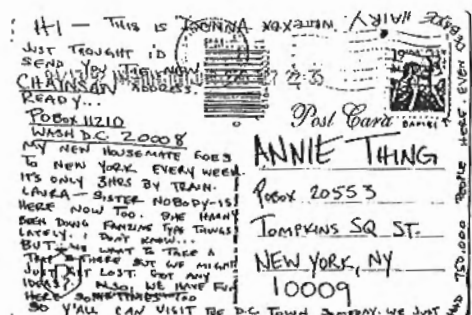 HI — THIS IS DONNA
JUST THOUGHT I'D
SEND YOU
CHAINSAW ADDRESS.
READY...
PO BOX 11210
WASH D.C. 20008
MY NEW HOUSEMATE GOES
TO NEW YORK EVERY WEEK
IT'S ONLY 3HRS BY TRAIN.
LAURA — SISTER NOBODY - IS
HERE NOW TOO. SHE HASN'T
BEEN DOING FANZINE TYPE THINGS
LATELY. I DON'T KNOW...
BUT WE WANT TO TAKE A
THERE BUT WE MIGHT
JUST GET LOST. GOT ANY
IDEAS? ALSO, WE HAVE FUN
HERE SOMETIMES TOO
SO Y'ALL CAN VISIT THE D.C. TOWN SOMEDAY. WE JUST
HAD 750,000 PEOPLE HERE EVEN
22:35
Post Card
ANNIE THING
POBOX 20553
TOMPKINS SQ ST.
NEW YORK, NY
10009